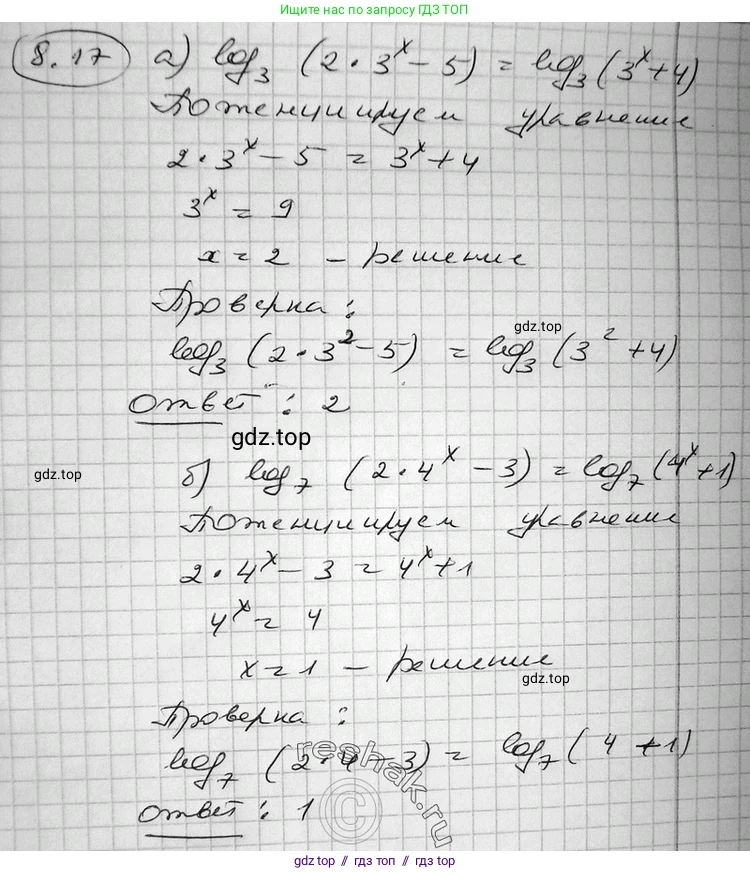 Ищите нас по запросу ГДЗ ТОП
8.17 а) log₃ (2·3ˣ - 5) = log₃ (3ˣ+4)
Потенциируем уравнение
2·3ˣ - 5 = 3ˣ+4
3ˣ = 9
x = 2 - решение
Проверка:
gdz.top
log₃ (2·3² - 5) = log₃ (3² + 4)
Ответ: 2
gdz.top
gdz.top
б) log₇ (2·4ˣ - 3) = log₇ (4ˣ+1)
Потенциируем уравнение
2·4ˣ - 3 = 4ˣ+1
4ˣ = 4
x = 1 - решение
gdz.top
Проверка:
log₇ (2·4 - 3) = log₇ (4 + 1)
reshak.ru
©
Ответ: 1
gdz.top // гдз топ // gdz.top